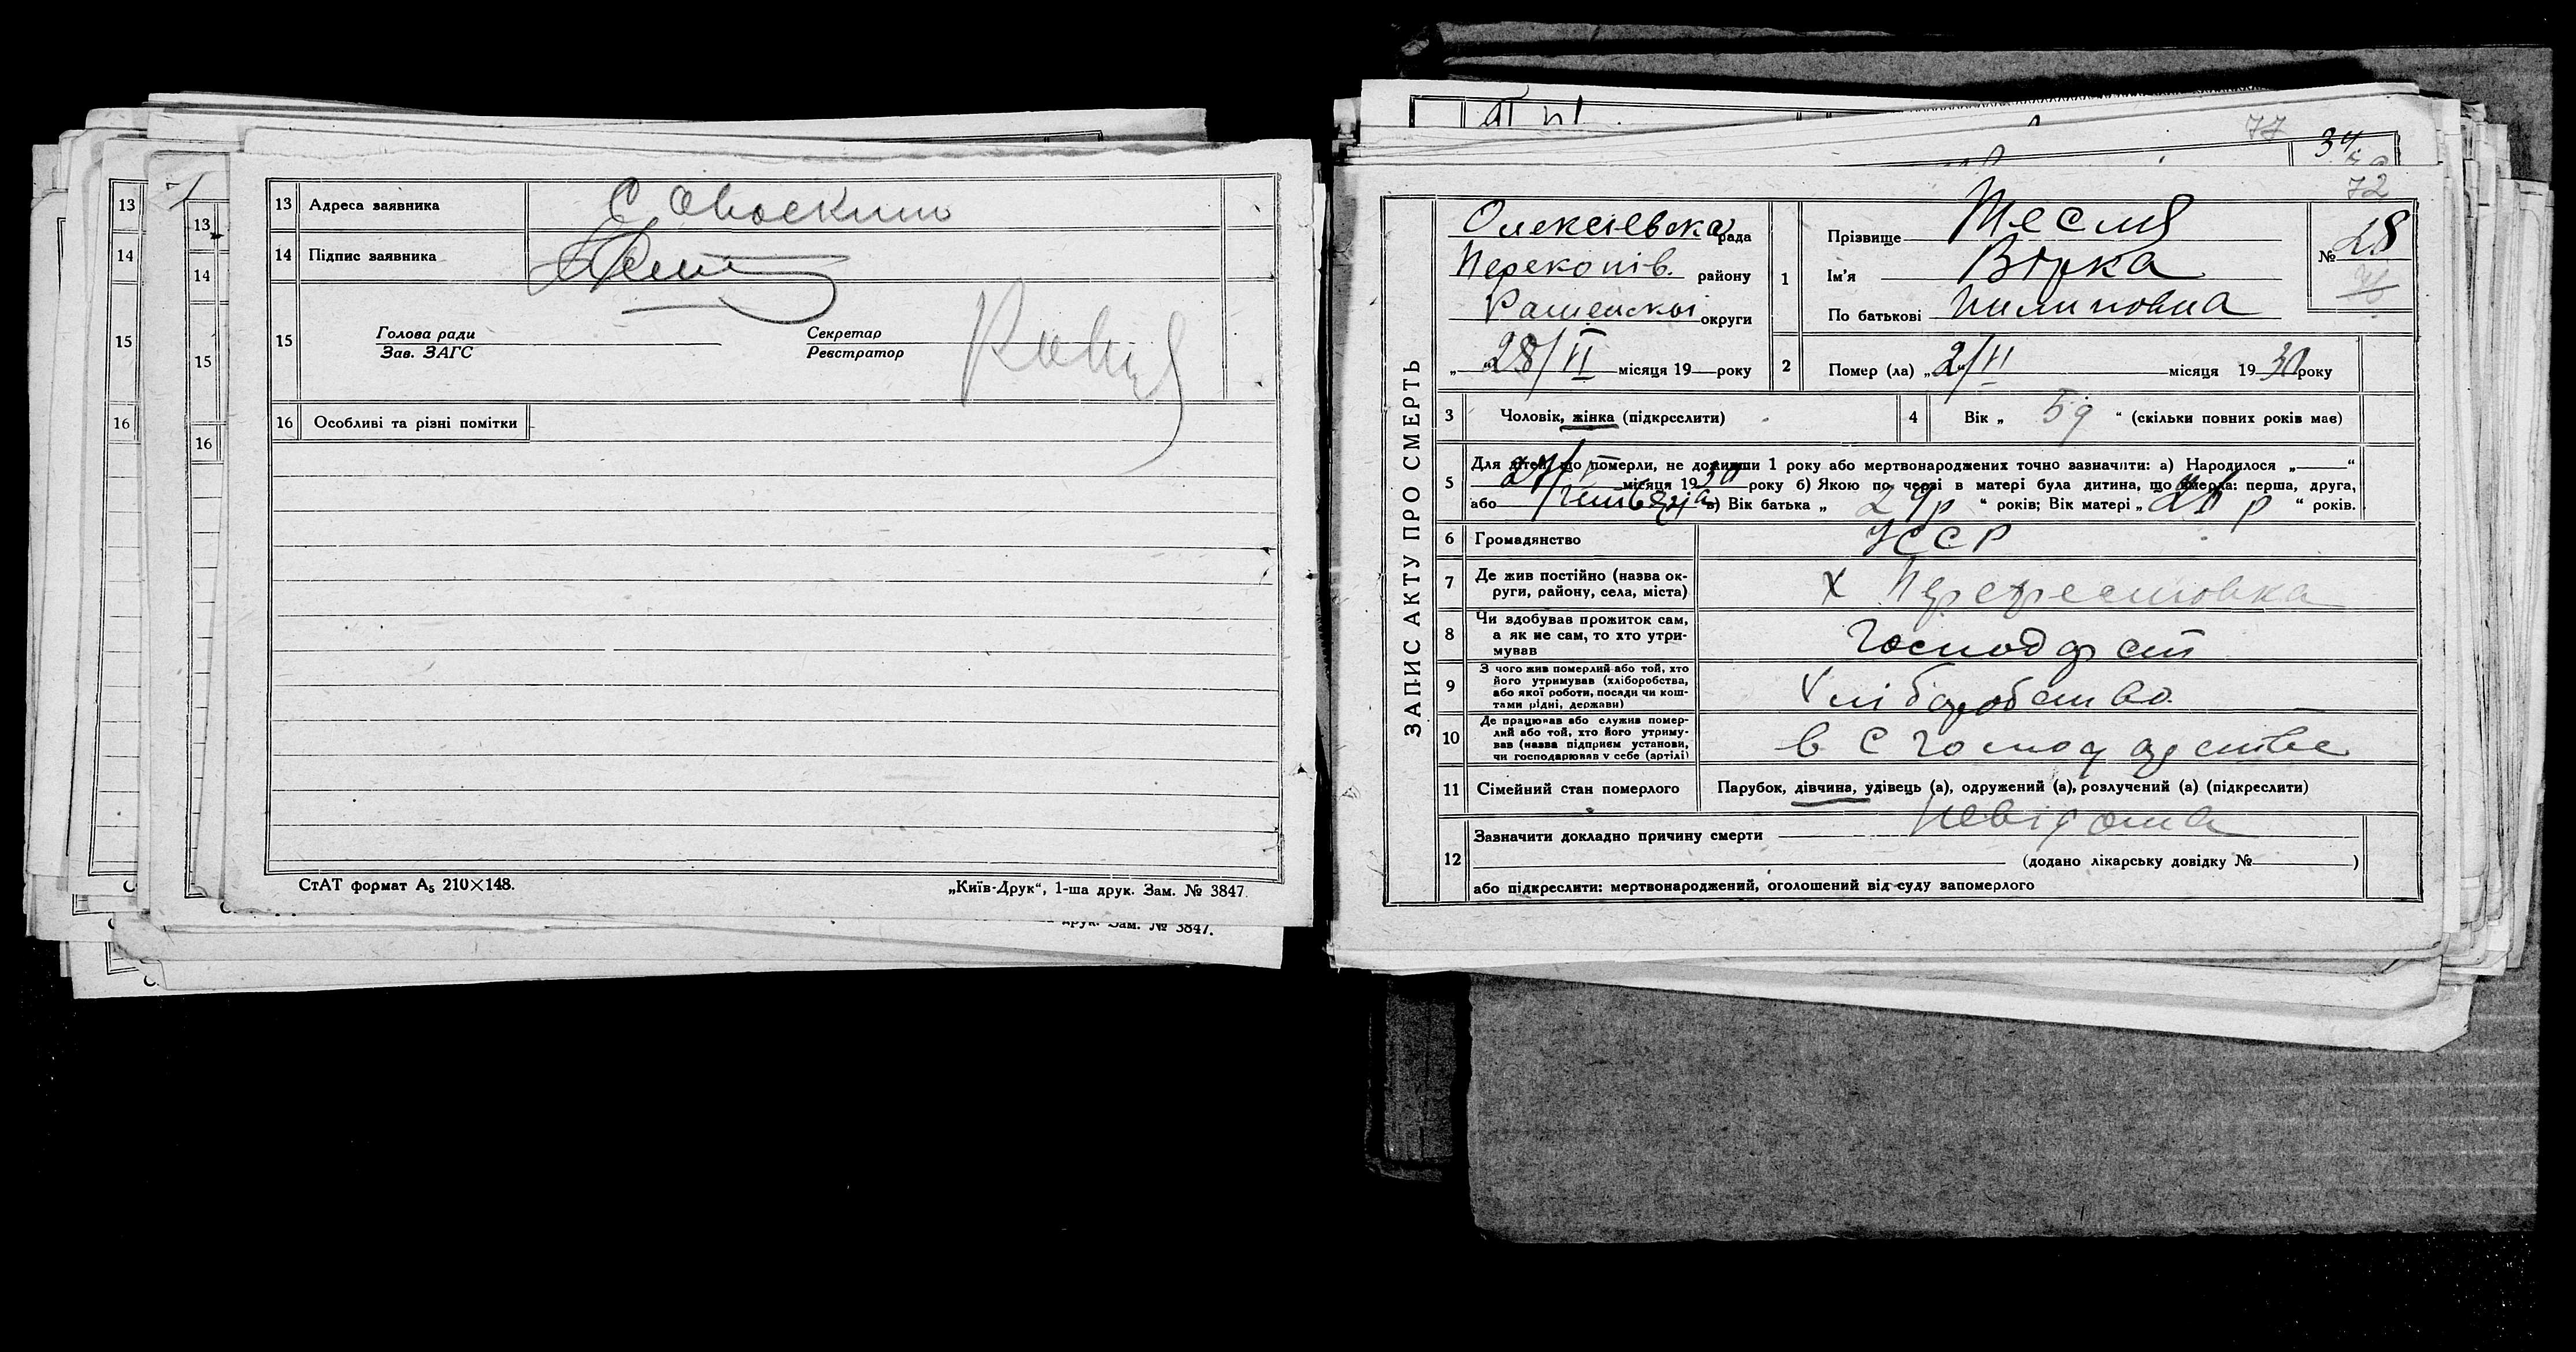 13 Адреса заявника
14 Підпис заявника
15 Голова ради Секретар
Зав. ЗАГС Реєстратор
16 Особливі та різні помітки
СтАТ формат А₅ 210×148. „Київ-Друк“, 1-ша друк. Зам. № 3847.
друк. Зам. № 3847.
13
14
15
16
13
14
15
16
77
34
72
ЗАПИС АКТУ ПРО СМЕРТЬ
Олексіевська рада
Перекопів. району
округи
„ 28/VI місяця 19 — року
1 Прізвище Тесля
Ім'я Вірка
По батькові Пилиповна
№ 28
2 Помер (ла) „ 2/VI місяця 19 30 року
3 Чоловік, жінка (підкреслити)
4 Вік „ 5 д “ (скільки повних років має)
5 Для дітей, що померли, не доживши 1 року або мертвонароджених точно зазначити: а) Народилося „ — “
27/ місяця 19 30 року б) Якою по черзі в матері була дитина, що вмерла: перша, друга,
або четверта в) Вік батька „ 29 р “ років; Вік матері „ р “ років.
6 Громадянство УССР
7 Де жив постійно (назва ок-
руги, району, села, міста) х Перехрестовка
8 Чи здобував прожиток сам,
а як не сам, то хто утри-
мував
9 З чого жив померлий або той, хто
його утримував (хліборобства,
або якої роботи, посади чи кош-
тами рідні, держави) Хліборобство
10 Де працював або служив помер-
лий або той, хто його утриму-
вав (назва підприєм установи,
чи господарював у себе (артілі) в С господарстве
11 Сімейний стан померлого Парубок, дівчина, удівець (а), одружений (а), розлучений (а) (підкреслити)
12 Зазначити докладно причину смерти Невідома
(додано лікарську довідку № )
або підкреслити: мертвонароджений, оголошений від суду запомерлого